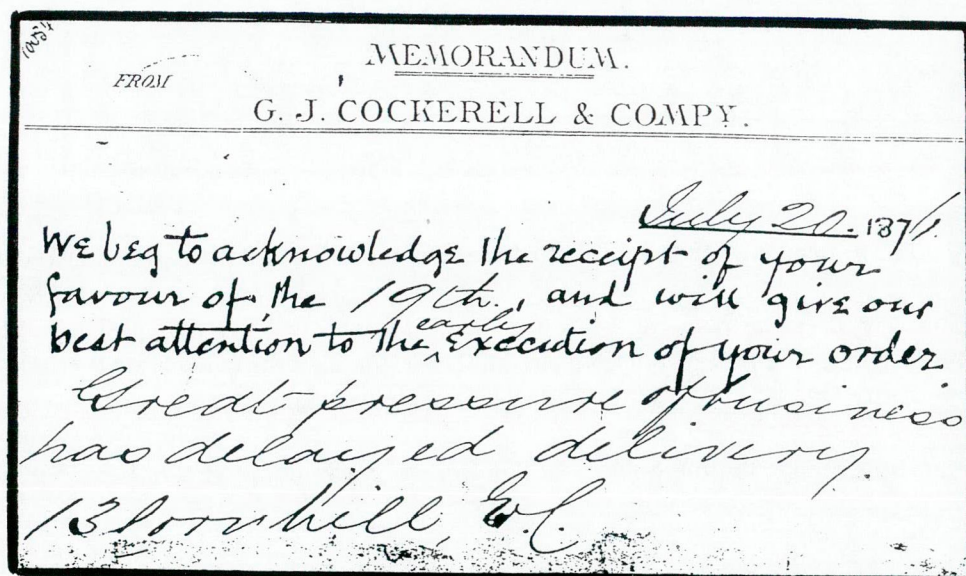 MEMORANDUM.
FROM
G. J. COCKERELL & COMPY.
July 20. 1871.
We beg to acknowledge the receipt of your
favour of the 19th., and will give our
early
best attention to the ^ execution of your order.
Great pressure of business
has delayed delivery.
13 Cornhill, E.C.